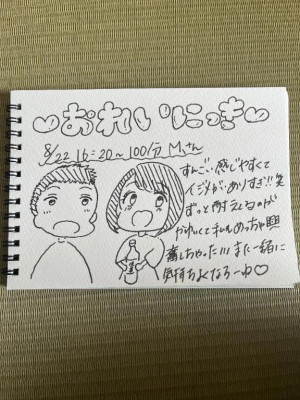 ♡おれいにっき♡
8/22 16:20~100分 Mさん
すんごい感じやすくて
イジメがいありすぎ!!笑
ずっと耐えてるのが
かわいくて私もめっちゃ興
奮しちゃった!!! また一緒に
気持ちよくなろーね♡